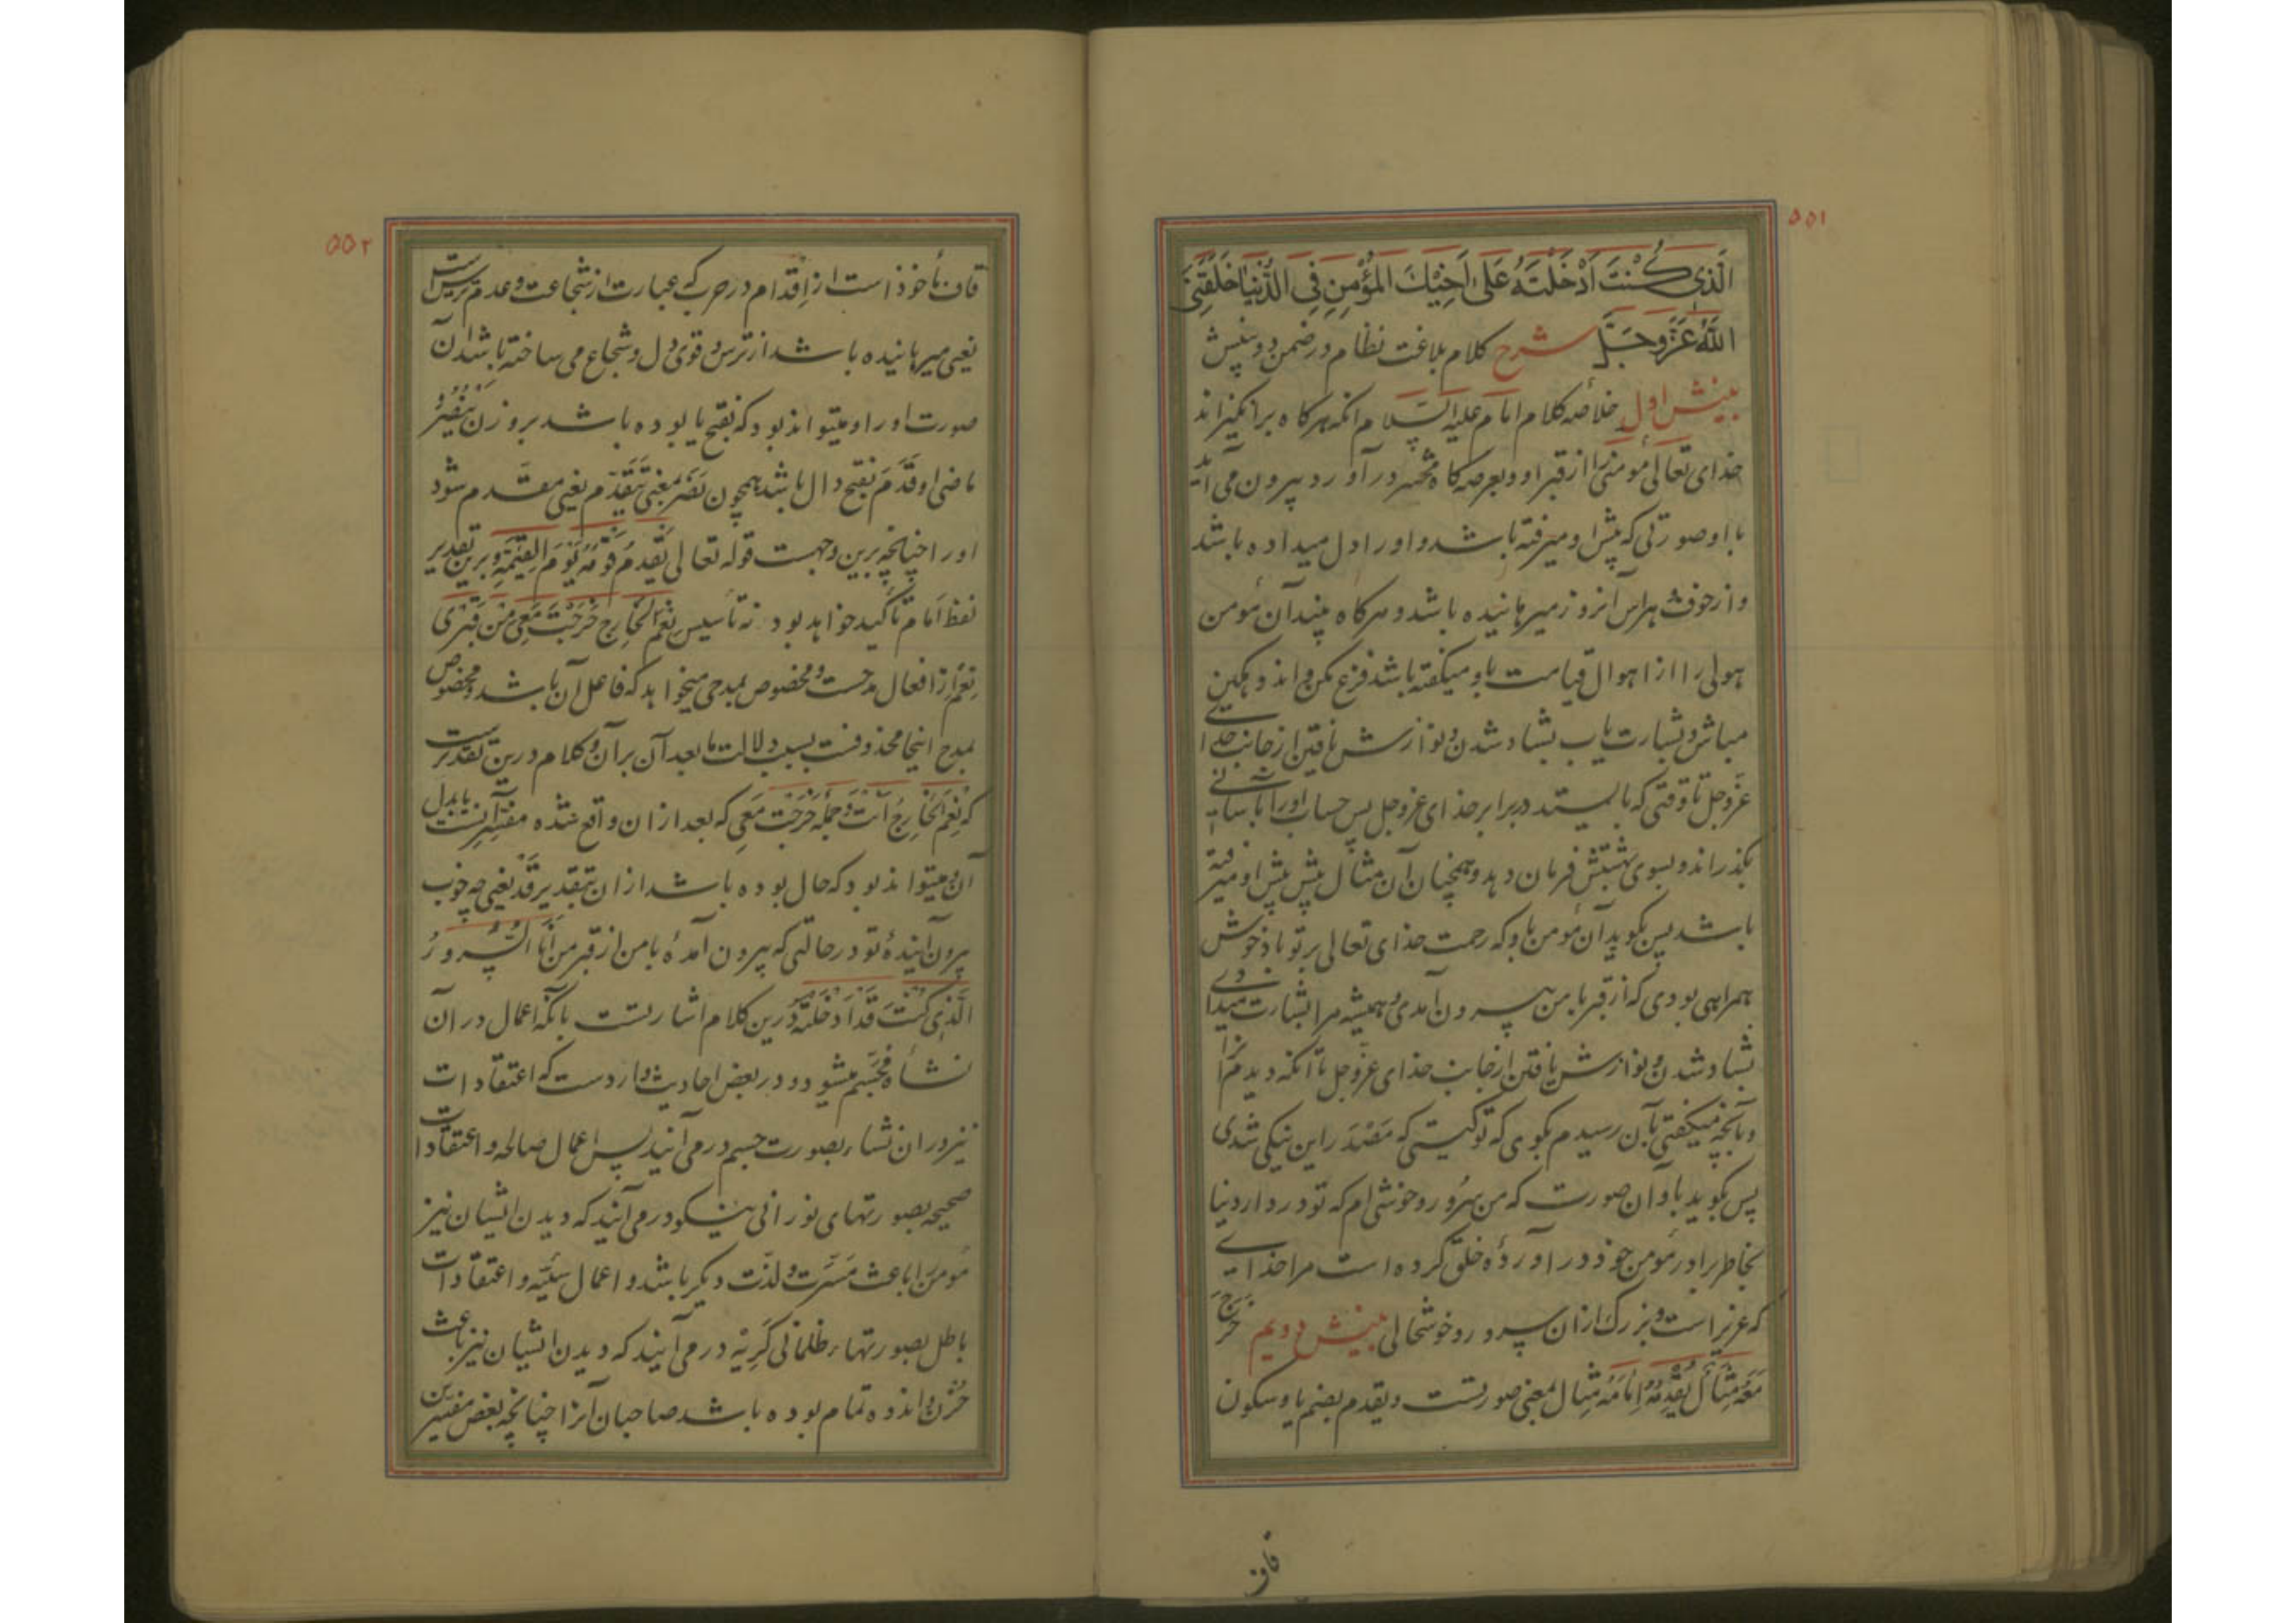 ۵۵۱
الَّذِی کُنْتَ اَدْخَلْتَهُ عَلیٰ اَخِیْكَ المُؤْمِنِ فِی الدُّنْیَا خَلَقَنِیَ
اللّٰهُ عَزَّوَجَلَّ شرح کلام بلاغت نظام در ضمن دو بینش
بینش اول خلاصه کلام امام علیه السلام انکه هرکاه برانکیزاند
خدای تعالی مؤمنی را از قبر او و بعرصه کاه محشر درآورد بیرون می آید
با او صورتی که پیش او میرفته باشد و او را دل میداده باشد
و از خوف و هراس آنروز میرهانیده باشد و هرکاه بیند آن مؤمن
هولی را از اهوال قیامت باو میکفته باشد فزع مکن و اندوهکین
مباش و بشارت یاب بشاد شدن و نوازش یافتن از جانب خدای
عزوجل تا وقتی که بایستد در برابر خدای عزوجل پس حساب او را بآسانی
بکذراند و بسوی بهشتش فرمان دهد و همچنان آن مثال پیش پیش او میرفته
باشد پس بکوید آن مؤمن باو که رحمت خدای تعالی بر تو باد خوش
همراهی بودی که از قبر با من بیرون آمدی و همیشه مرا بشارت میدادی
بشاد شدن و نوازش یافتن از جانب خدای عزوجل تا آنکه دیدم آنرا
و بآنچه میکفتی بآن رسیدم بکوی که تو کیستی که مَصْدَر این نیکی شدی
پس بکوید باو آن صورت که من سُرور و خوشی ام که تو در دار دنیا
بخاطر برادر مؤمن خود در آورده خلق کرده است مرا خدای
که عزیز است و بزرک از ان سرور و خوشحالی بینش دویم خَرَجَ
مَعَهُ مِثَالٌ یُقْدِمُهُ اَمَامَهُ مثال بمعنی صورتست و یقدم بضم یا و سکون
قاف
۵۵۲
قاف مأخوذ است از اِقدام در حرب که عبارت از شجاعت و عدم ترس است
یعنی میرهانیده باشد از ترس و قوی دل و شجاع می ساخته باشد آن
صورت او را و میتواند بود که بفتح یا بوده باشد بر وزن یَنْصُرُ و
ماضی او قَدَمَ بفتح دال باشد همچون نَصَرَ بمعنی تَقَدَّم یعنی مقدم شود
او را چنانچه برین وجهت قوله تعالی یَقْدُمُ قَوْمَهُ یَوْمَ القِیٰمَةِ و برین تقدیر
لفظ اَمام تأکید خواهد بود نه تأسیس نِعْمَ الخَارِجُ خَرَجْتَ مَعِی مِنْ قَبْرِی
نِعْمَ از افعال مدحست و مخصوص بمدحی میخواهد که فاعل آن باشد و مخصوص
بمدح اینجا محذوفست بسبب دلالت مابعد آن بر آن و کلام درین تقدیرست
که نِعْمَ الخَارِجُ اَنْتَ و جمله خَرَجْتَ مَعِی که بعد از ان واقع شده مفسّر آنست یا بدل
آن و میتواند بود که حال بوده باشد از ان بتقدیر قَدْ یعنی چه خوب
بیرون آیندهٔ تو در حالتی که بیرون آمدهٔ با من از قبر من اَنَا السُّرُورُ
الَّذِی کُنْتَ قَدْ اَدْخَلْتَهُ درین کلام اشارتست بآنکه اعمال در آن
نشأه مُجَسَّم میشود و در بعض احادیث وارد ست که اعتقادات
نیز در ان نشاء بصورت جسم در می آیند پس اعمال صالحه و اعتقادات
صحیحه بصورتهای نورانی نیکو در می آیند که دیدن ایشان نیز
مؤمن را باعث مَسَرّت و لذّت دیکر باشد و اعمال سَیِّئه و اعتقادات
باطل بصورتهاء ظلمانی کَرِیْه در می آیند که دیدن ایشان نیز باعث
حُزْن و اندوه تمام بوده باشد صاحبان آنرا چنانچه بعض مفسرین